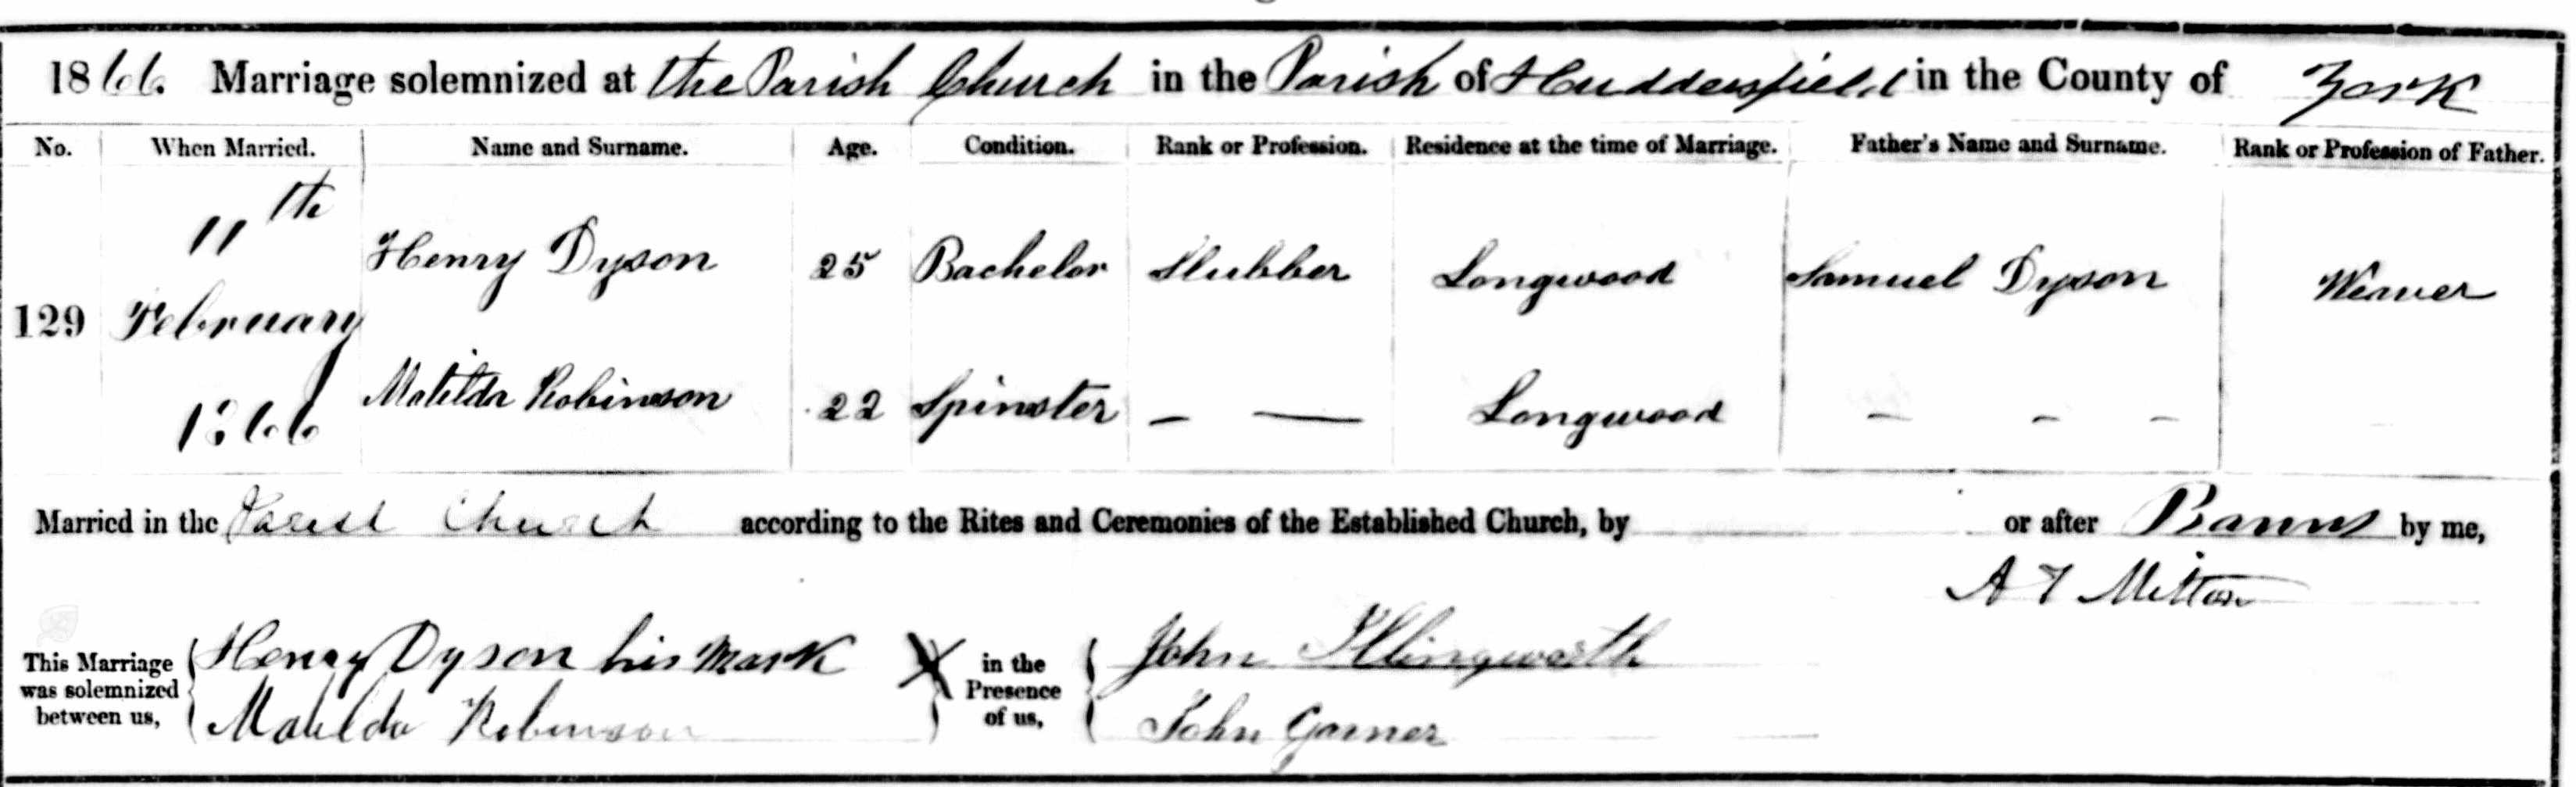 1866. Marriage solemnized at the Parish Church in the Parish of Huddersfield in the County of York
No. When Married. Name and Surname. Age. Condition. Rank or Profession. Residence at the time of Marriage. Father's Name and Surname. Rank or Profession of Father.
129 11th February 1866
Henry Dyson 25 Bachelor Slubber Longwood Samuel Dyson Weaver
Matilda Robinson 22 Spinster — — Longwood – – –
Married in the Parish Church according to the Rites and Ceremonies of the Established Church, by or after Banns by me,
A T Mitton
This Marriage was solemnized between us, Henry Dyson his mark X in the Presence of us, John Illingworth
Matilda Robinson John Garner